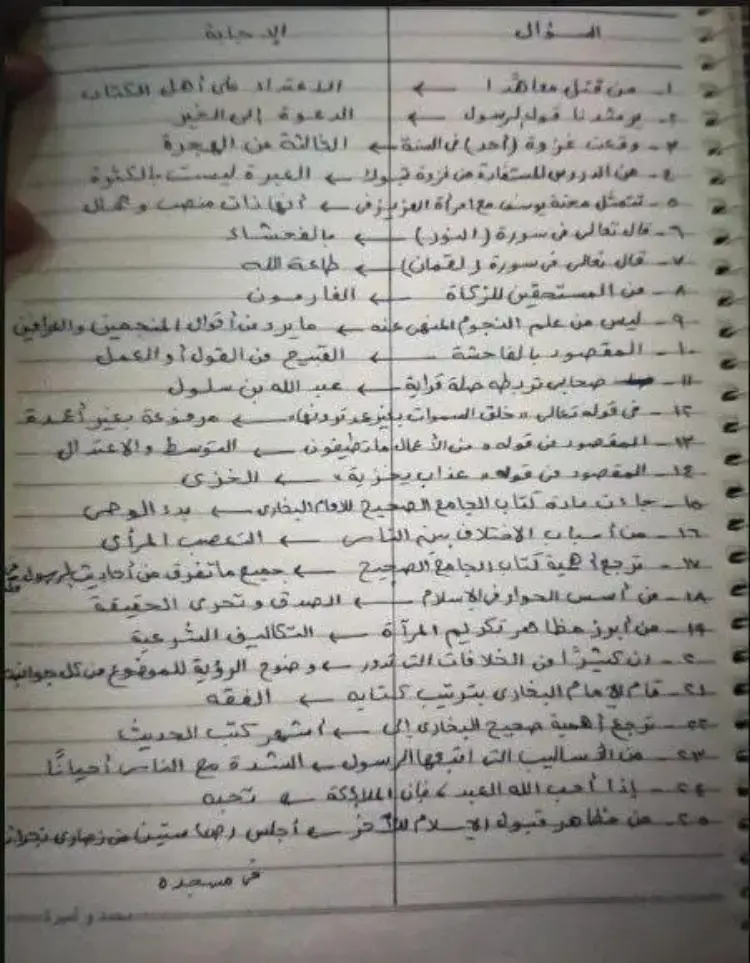 السؤال الإجابة
١- من قتل معاهدًا ← الاعتداء على أهل الكتاب
٢- يرشدنا قول الرسول ← الدعوة إلى الخير
٣- وقعت غزوة (أحد) في السنة ← الثالثة من الهجرة
٤- من الدروس المستفادة من غزوة تبوك ← العبرة ليست بالكثرة
٥- تتمثل محنة يوسف مع امرأة العزيز في ← أنها ذات منصب وجمال
٦- قال تعالى في سورة (النور) ← بالفحشاء
٧- قال تعالى في سورة (لقمان) ← طاعة الله
٨- من المستحقين للزكاة ← الغارمون
٩- ليس من علم النجوم المنهى عنه ← ما يرد من أقوال المنجمين والعرافين
١٠- المقصود بالفاحشة ← القبيح من القول أو العمل
١١- صحابى تربطه صلة قرابة ← عبد الله بن سلول
١٢- في قوله تعالى "خلق السموات بغير عمد ترونها" ← مرفوعة بغير أعمدة
١٣- المقصود من قوله "من الأعمال ما تطيقون ← التوسط والاعتدال
١٤- المقصود من قوله "عذاب يخزيه" ← الخزى
١٥- جاءت مادة كتاب الجامع الصحيح للإمام البخارى ← بدء الوحى
١٦- من أسباب الاختلاف بين الناس ← التعصب للرأى
١٧- ترجع أهمية كتاب الجامع الصحيح ← جميع ما تفرق من أحاديث الرسول
١٨- من أسس الحوار في الإسلام ← الصدق وتحرى الحقيقة
١٩- من أبرز مظاهر تكريم المرآة ← التكاليف الشرعية
٢٠- إن كثيرًا من الخلافات التى تدور ← وضوح الرؤية للموضوع من كل جوانبه
٢١- قام الإمام البخارى بترتيب كتابه ← الفقه
٢٢- ترجع أهمية صحيح البخارى إلى ← أشهر كتب الحديث
٢٣- من الأساليب التى اتبعها الرسول ← الشدة مع الناس أحيانًا
٢٤- إذا أحب الله العبد، فإن الملائكة ← تحبه
٢٥- من مظاهر قبول الإسلام للآخر ← أجلس ستين من نصارى نجران
في مسجده